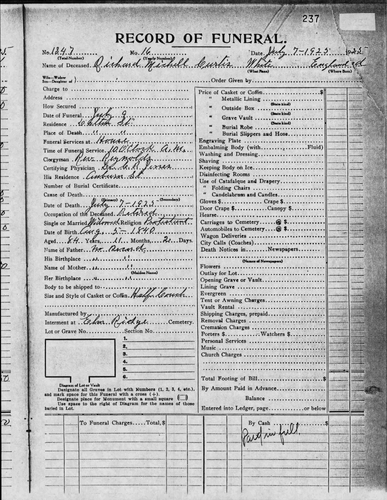 237
RECORD OF FUNERAL.
No. 1347 No. 16 Date July 7-1925
(Total Number) (Yearly Number)
Name of Deceased Richard Michell Curtis White England
(What Race) (Where Born)
Wife—Widow—
Son—Daughter of
Charge to
Address
How Secured
Date of Funeral July 9
Residence
Place of Death " "
Funeral Services at House
Time of Funeral Service 10 O'Clock A.M.
Clergyman Rev. Reynolds
Certifying Physician Dr. Jones
His Residence
Number of Burial Certificate
Cause of Death
Date of Death July 7-1925
Occupation of the Deceased Retired
Single or Married Widowed Religion Protestant
Date of Birth Aug. 5-1840
Aged 84 Years 11 Months 2 Days
Name of Father
His Birthplace "
Name of Mother
(Maiden Name)
Her Birthplace
Body to be shipped to
Size and Style of Casket or Coffin Half Couch
Manufactured by
Interment at Elm Ridge Cemetery.
Lot or Grave No. Section No.
Diagram of Lot or Vault
Designate all Graves in Lot with Numbers (1, 2, 3, 4, etc.)
and mark space for this Funeral with a cross (+).
Designate place for Monument with a small square
Use space to right of Diagram for the names of those
buried in Lot.
Order Given by
Price of Casket or Coffin
" Metallic Lining
(State kind)
" Outside Box
(State kind)
" Grave Vault
(State kind)
" Burial Robe
(State kind)
" Burial Slippers and Hose
Engraving Plate
Embalming Body (with Fluid)
Washing and Dressing
Shaving
Keeping Body on Ice
Disinfecting Rooms
Use of Catafalque and Drapery
" Folding Chairs
" Candelabrum and Candles
Gloves $ Crape $
Door Crape $ Candles $
Hearse
Carriages to Cemetery @ $
Automobiles to Cemetery @ $
Wagon Deliveries @ $
City Calls (Coaches) @ $
Death Notices in Newspapers
(Names of Newspapers)
Flowers
Outlay for Lot
Opening Grave or Vault
Lining Grave
Evergreen
Tent or Awning Charges
Vault Rental
Shipping Charges, prepaid
Removal Charges
Cremation Charges
Porters $ Watchers $
Personal Services
Music
Church Charges
Total Footing of Bill $
By Amount Paid in Advance
Balance
Entered into Ledger, page or below.
To Funeral Charges $
By Cash $
Paid in full.